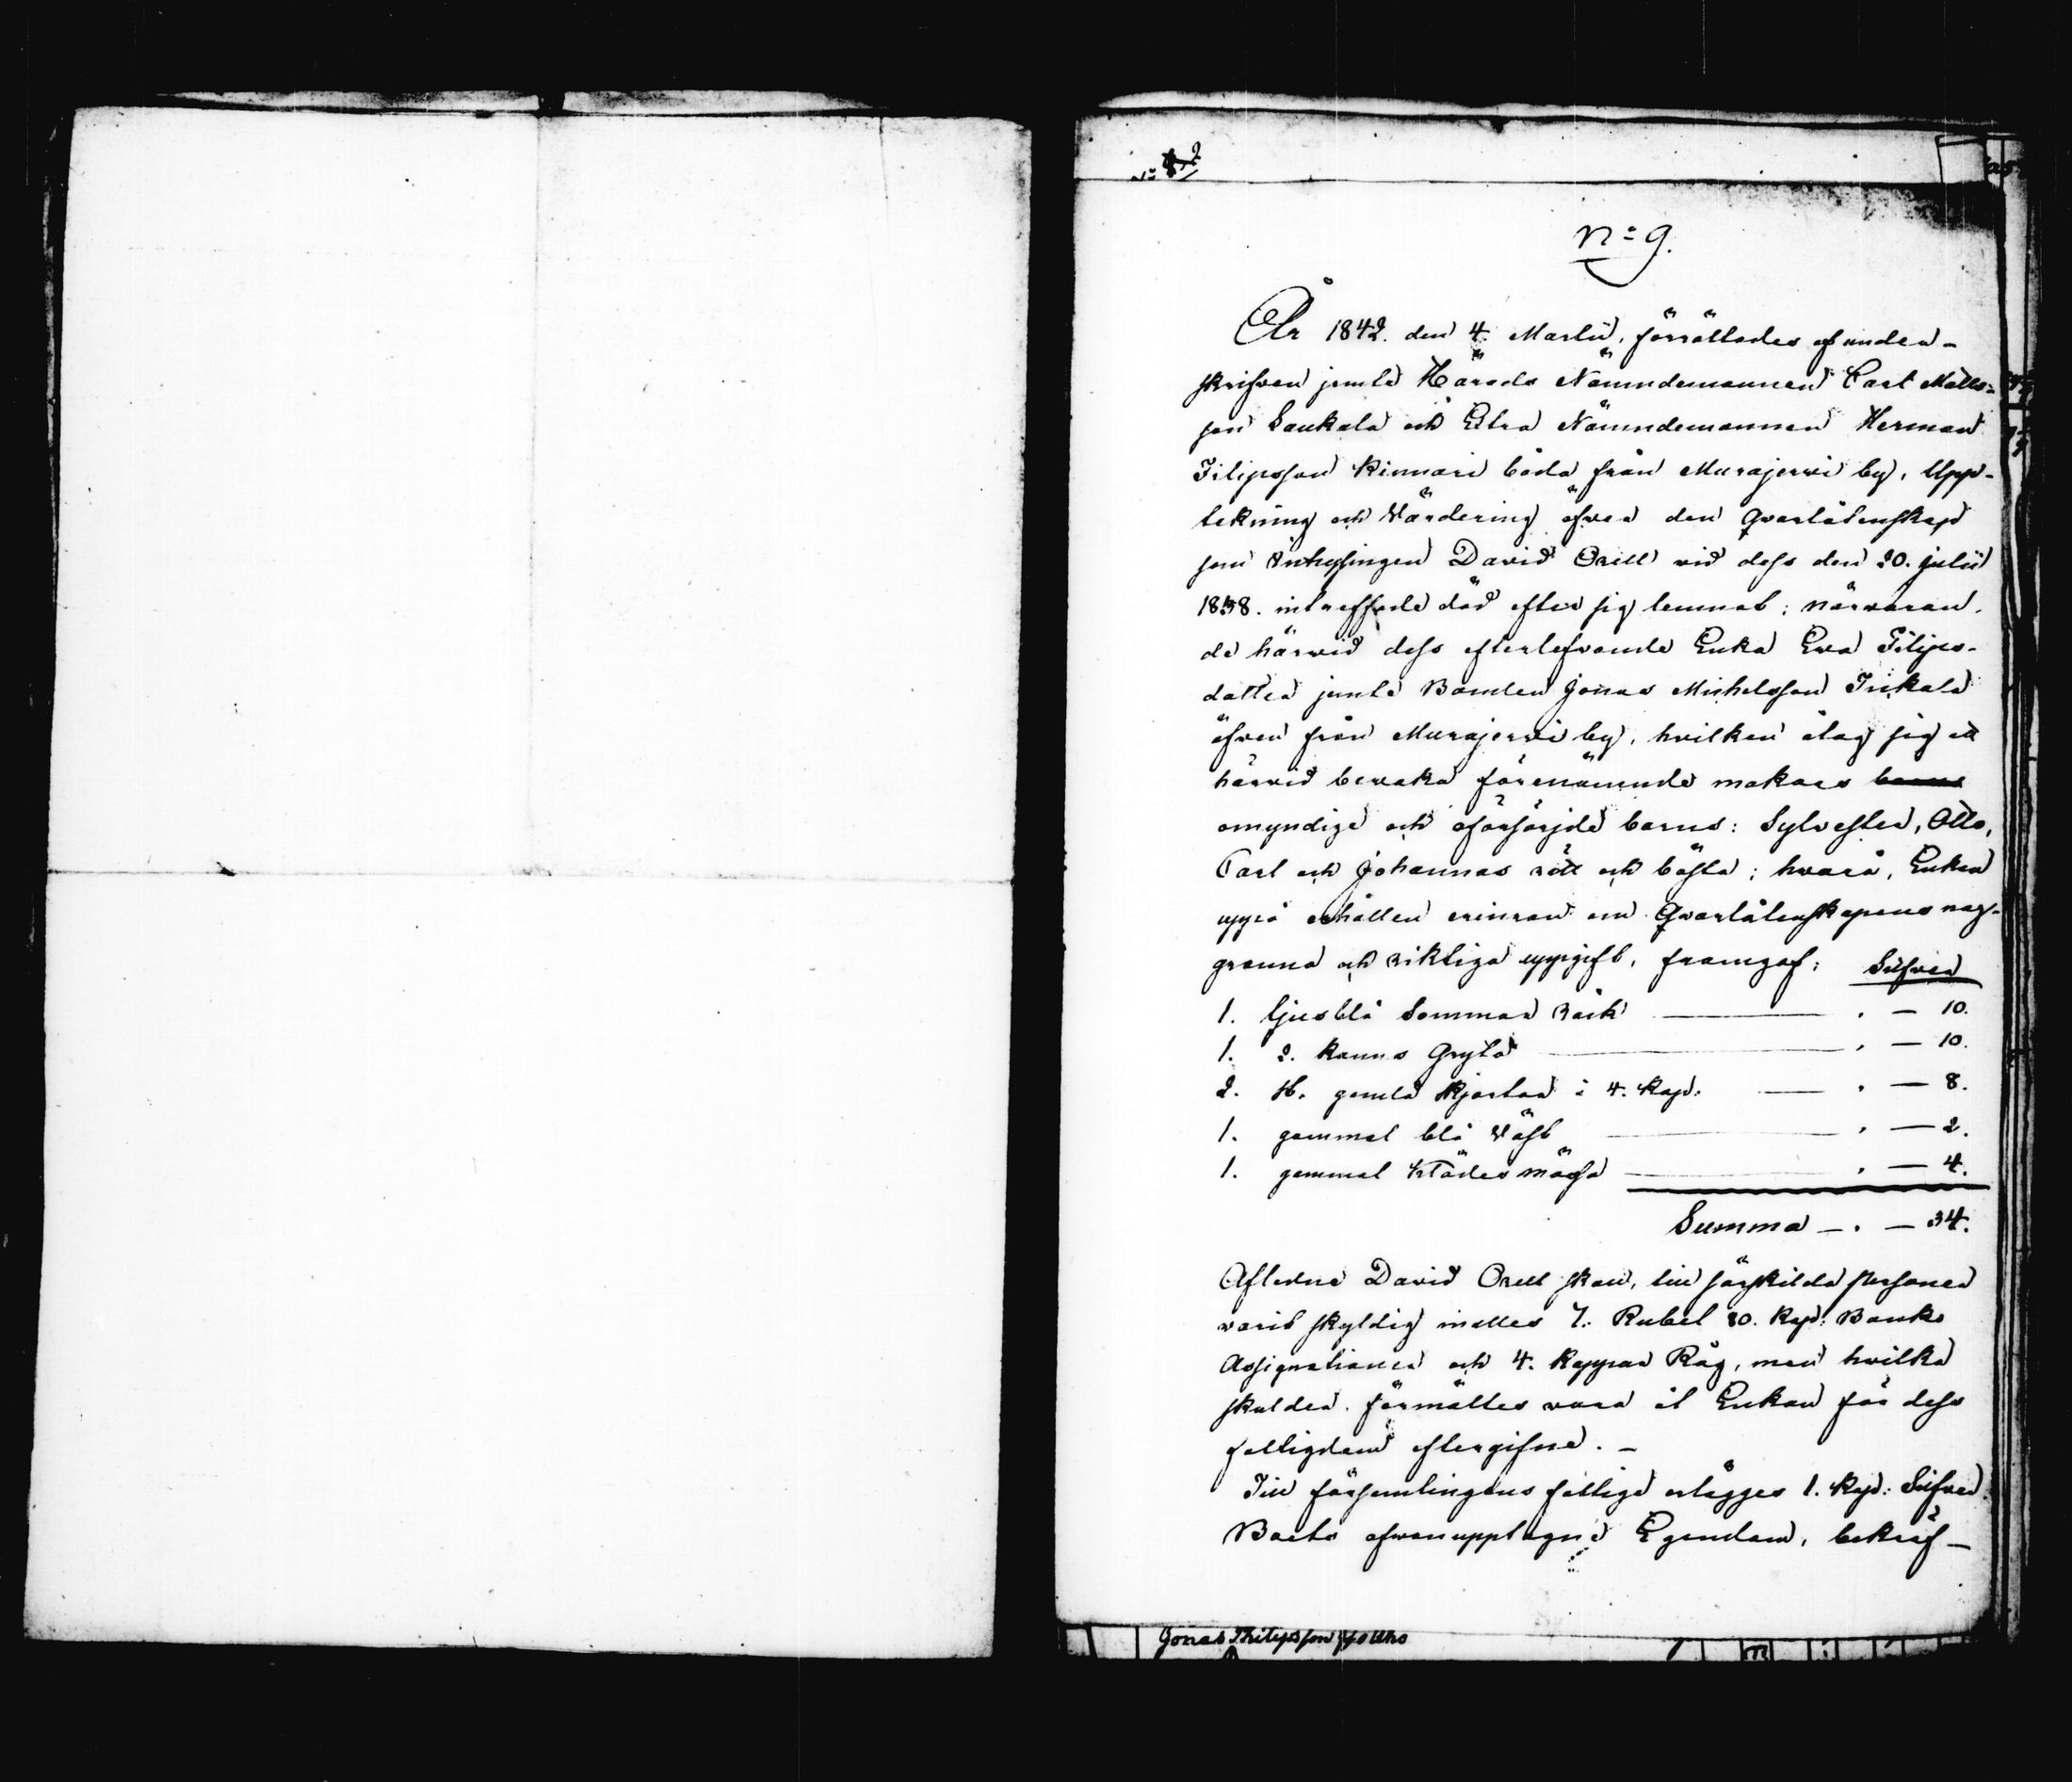 n:o 9.
År 1842. den 4. Martii, förrättades af under-
skrifven jemte Härads Nämndemannen Carl Matts-
son Laukala och Extra Nämndemannen Herman
Filipsson Kinnari båda från Murajervi by, Upp-
tekning och Värdering öfver den Qvarlåtenskap
som Inhysingen David Orell vid dess den 20. Julii
1838. inträffade död efter sig lemnat; närvaran-
de härvid dess efterlefvande Enka Eva Filips-
dotter jemte Bonden Jonas Michelsson Inkala
äfven från Murajervi by, hvilken åtog sig att
härvid bevaka förenämnde makars barns
omyndige och oförsörjde barns: Sylvester, Otto,
Carl och Johannas rätt och bästa; hvarå, Enkan
uppå erhållen erinran om Qvarlåtenskapens nog-
granna och riktiga uppgift, framgaf: Silfver
1. ljusblå Sommar råck . — 10.
1. 2. kanns Gryta . — 10.
2. st. gamla skjortor à 4. kop. . — 8.
1. gammal blå Väst . — 2.
1. gammal Klädes mössa . — 4.
Summa — . — 34.
Aflidne David Orell skall, till särskilda personer
varit skyldig inalles 7. Rubel 20. kop: Banko
Assignationer och 4. kappar Råg, men hvilka
skulder förmältes vara åt Enkan för dess
fattigdom eftergifne. —
Till församlingens fattige erlägges 1. kop: Silfver.
Boets ofvanupptagne Egendom, bekräf-
Jonas Philipsson